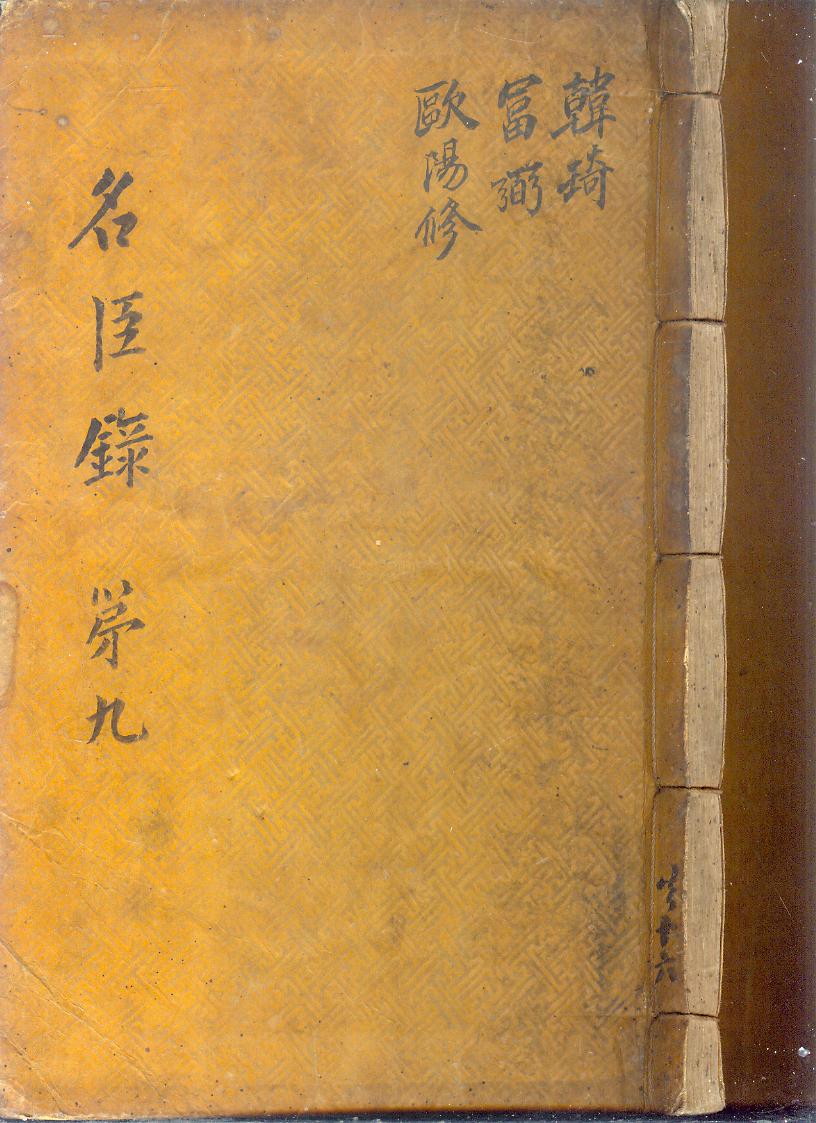 韓琦
冨弼
歐陽修
名臣錄 第九
共十六